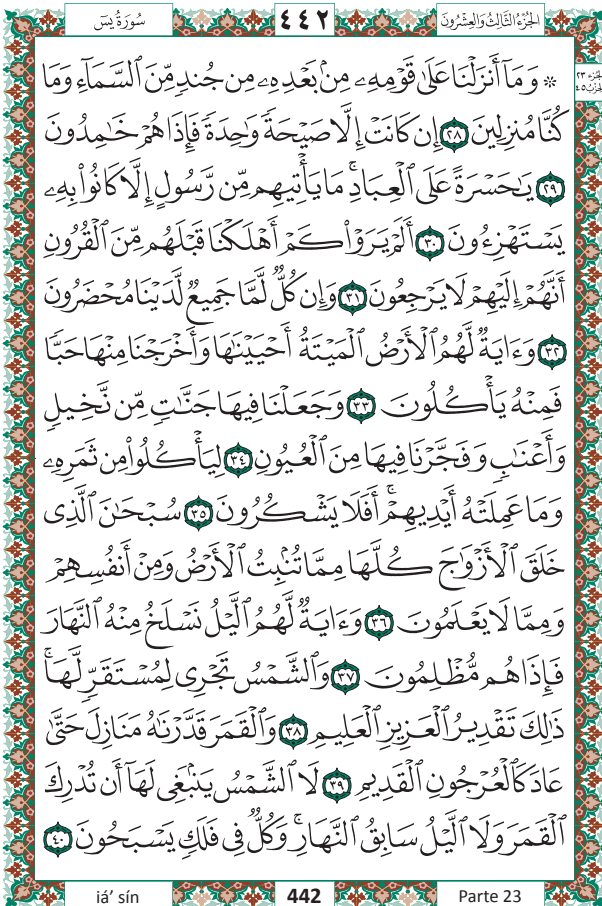 سُورَةُ يسٓ ٤٤٢ الجُزْءُ الثَّالِثُ وَالعِشْرُونَ
۞ وَمَآ أَنزَلْنَا عَلَىٰ قَوْمِهِۦ مِنۢ بَعْدِهِۦ مِن جُندٍ مِّنَ ٱلسَّمَآءِ وَمَا
كُنَّا مُنزِلِينَ ٢٨ إِن كَانَتْ إِلَّا صَيْحَةً وَٰحِدَةً فَإِذَا هُمْ خَٰمِدُونَ
٢٩ يَٰحَسْرَةً عَلَى ٱلْعِبَادِ ۚ مَا يَأْتِيهِم مِّن رَّسُولٍ إِلَّا كَانُوا۟ بِهِۦ
يَسْتَهْزِءُونَ ٣٠ أَلَمْ يَرَوْا۟ كَمْ أَهْلَكْنَا قَبْلَهُم مِّنَ ٱلْقُرُونِ
أَنَّهُمْ إِلَيْهِمْ لَا يَرْجِعُونَ ٣١ وَإِن كُلٌّ لَّمَّا جَمِيعٌ لَّدَيْنَا مُحْضَرُونَ
٣٢ وَءَايَةٌ لَّهُمُ ٱلْأَرْضُ ٱلْمَيْتَةُ أَحْيَيْنَٰهَا وَأَخْرَجْنَا مِنْهَا حَبًّا
فَمِنْهُ يَأْكُلُونَ ٣٣ وَجَعَلْنَا فِيهَا جَنَّٰتٍ مِّن نَّخِيلٍ
وَأَعْنَٰبٍ وَفَجَّرْنَا فِيهَا مِنَ ٱلْعُيُونِ ٣٤ لِيَأْكُلُوا۟ مِن ثَمَرِهِۦ
وَمَا عَمِلَتْهُ أَيْدِيهِمْ ۖ أَفَلَا يَشْكُرُونَ ٣٥ سُبْحَٰنَ ٱلَّذِى
خَلَقَ ٱلْأَزْوَٰجَ كُلَّهَا مِمَّا تُنۢبِتُ ٱلْأَرْضُ وَمِنْ أَنفُسِهِمْ
وَمِمَّا لَا يَعْلَمُونَ ٣٦ وَءَايَةٌ لَّهُمُ ٱلَّيْلُ نَسْلَخُ مِنْهُ ٱلنَّهَارَ
فَإِذَا هُم مُّظْلِمُونَ ٣٧ وَٱلشَّمْسُ تَجْرِى لِمُسْتَقَرٍّ لَّهَا ۚ
ذَٰلِكَ تَقْدِيرُ ٱلْعَزِيزِ ٱلْعَلِيمِ ٣٨ وَٱلْقَمَرَ قَدَّرْنَٰهُ مَنَازِلَ حَتَّىٰ
عَادَ كَٱلْعُرْجُونِ ٱلْقَدِيمِ ٣٩ لَا ٱلشَّمْسُ يَنۢبَغِى لَهَآ أَن تُدْرِكَ
ٱلْقَمَرَ وَلَا ٱلَّيْلُ سَابِقُ ٱلنَّهَارِ ۚ وَكُلٌّ فِى فَلَكٍ يَسْبَحُونَ ٤٠
iá’ sín 442 Parte 23